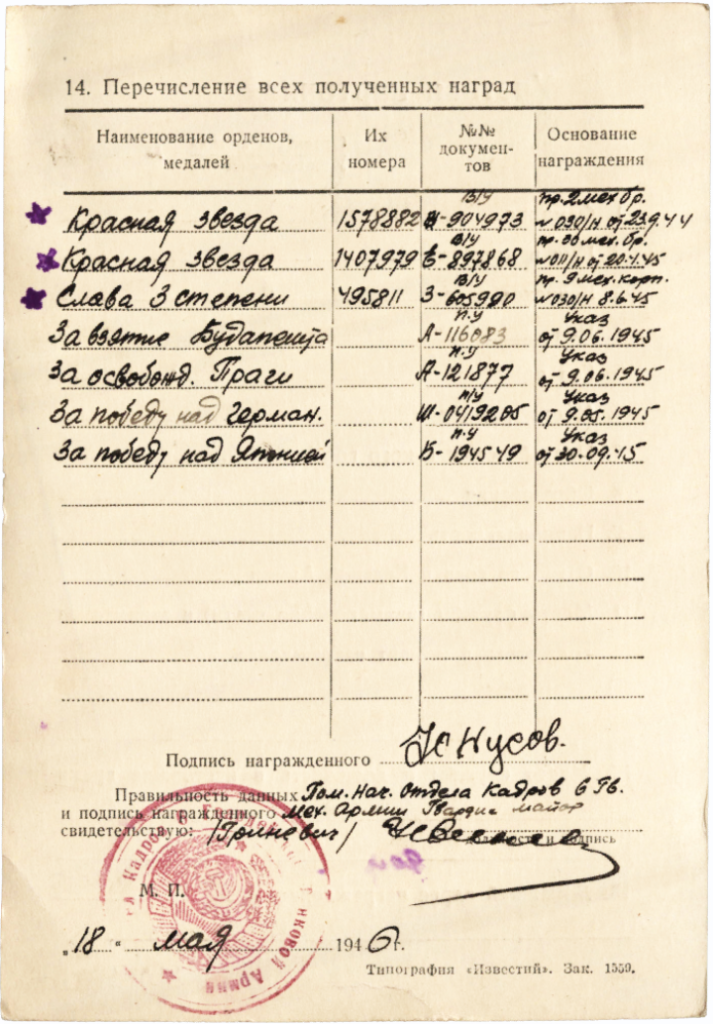 14. Перечисление всех полученных наград
Наименование орденов, медалей
Их номера
№№ документов
Основание награждения
Красная звезда 1578882 В/У 904973 пр. 2 мех бр. №030/Н от 23.9.44
Красная звезда 1407979 В/У Е-897868 пр. мех. бр. №011/Н от 20.1.45
Слава 3 степени 495811 В/У З-605990 пр. 9 мех. корп. №030/Н 8.6.45
За взятие Будапешта П.У А-116083 Указ от 9.06.1945
За освобожд. Праги П.У А-121877 Указ от 9.06.1945
За победу над Герман. П/У Ш-0419205 Указ от 9.05.1945
За победу над Японией П.У Б-194549 Указ от 30.09.45
Подпись награжденного Юнусов.
Правильность данных Пом. Нач. Отдела Кадров 6 Гв.
и подпись награжденного Мех. Армии Гвардии майор
свидетельствую: /Гриневич/
должность и подпись
М. П.
„18“ мая 1946 г.
Типография «Известий». Зак. 1559.